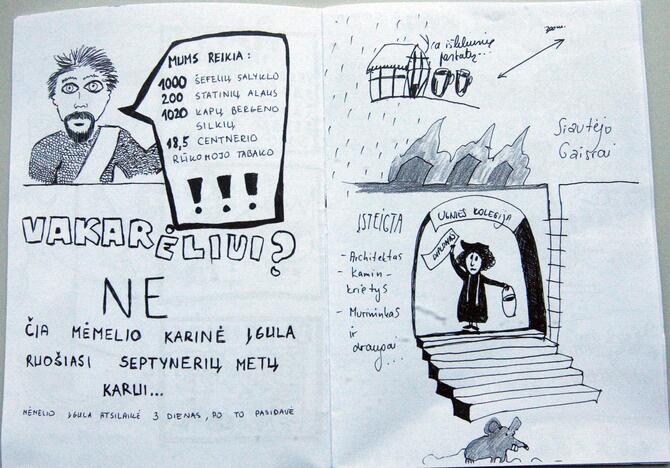 MUMS REIKIA:
1000 ŠEFELIŲ SALYKLO
200 STATINIŲ ALAUS
1020 KAPŲ BERGENO
SILKIŲ
18,5 CENTNERIO
RŪKOMOJO TABAKO
!!!
VAKARĖLIUI?
NE
ČIA MĖMELIO KARINĖ ĮGULA
RUOŠIASI SEPTYNERIŲ METŲ
KARUI...
MĖMELIO ĮGULA ATSILAIKĖ 3 DIENAS, PO TO PASIDAVĖ
yra išlikusių
pastatų...
200 m.
Siautėjo
Gaisrai
ĮSTEIGTA
- Architektas
- Kamin-
krėtys
- Mūrininkas
ir
draugai...
UGNIES KOLEGIJA
DIPLOMAS